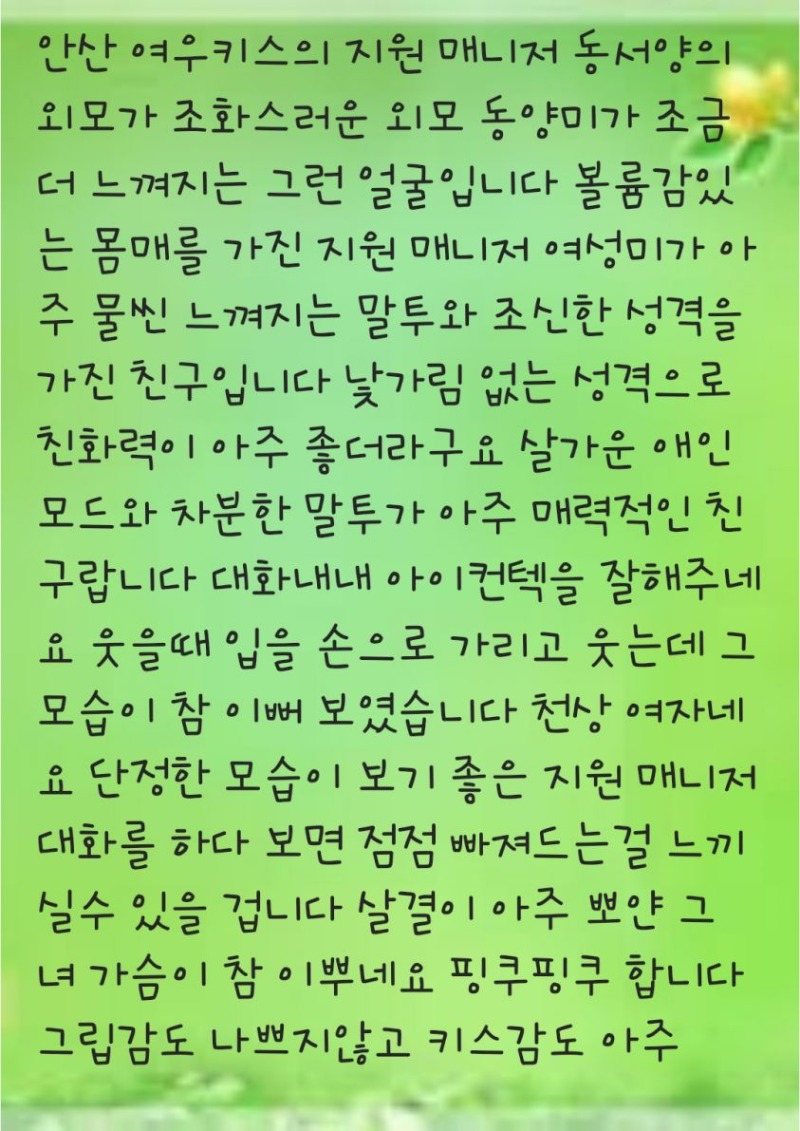 안산 여우키스의 지원 매니저 동서양의
외모가 조화스러운 외모 동양미가 조금
더 느껴지는 그런 얼굴입니다 볼륨감있
는 몸매를 가진 지원 매니저 여성미가 아
주 물씬 느껴지는 말투와 조신한 성격을
가진 친구입니다 낯가림 없는 성격으로
친화력이 아주 좋더라구요 살가운 애인
모드와 차분한 말투가 아주 매력적인 친
구랍니다 대화내내 아이컨텍을 잘해주네
요 웃을때 입을 손으로 가리고 웃는데 그
모습이 참 이뻐 보였습니다 천상 여자네
요 단정한 모습이 보기 좋은 지원 매니저
대화를 하다 보면 점점 빠져드는걸 느끼
실수 있을 겁니다 살결이 아주 뽀얀 그
녀 가슴이 참 이뿌네요 핑쿠핑쿠 합니다
그립감도 나쁘지않고 키스감도 아주